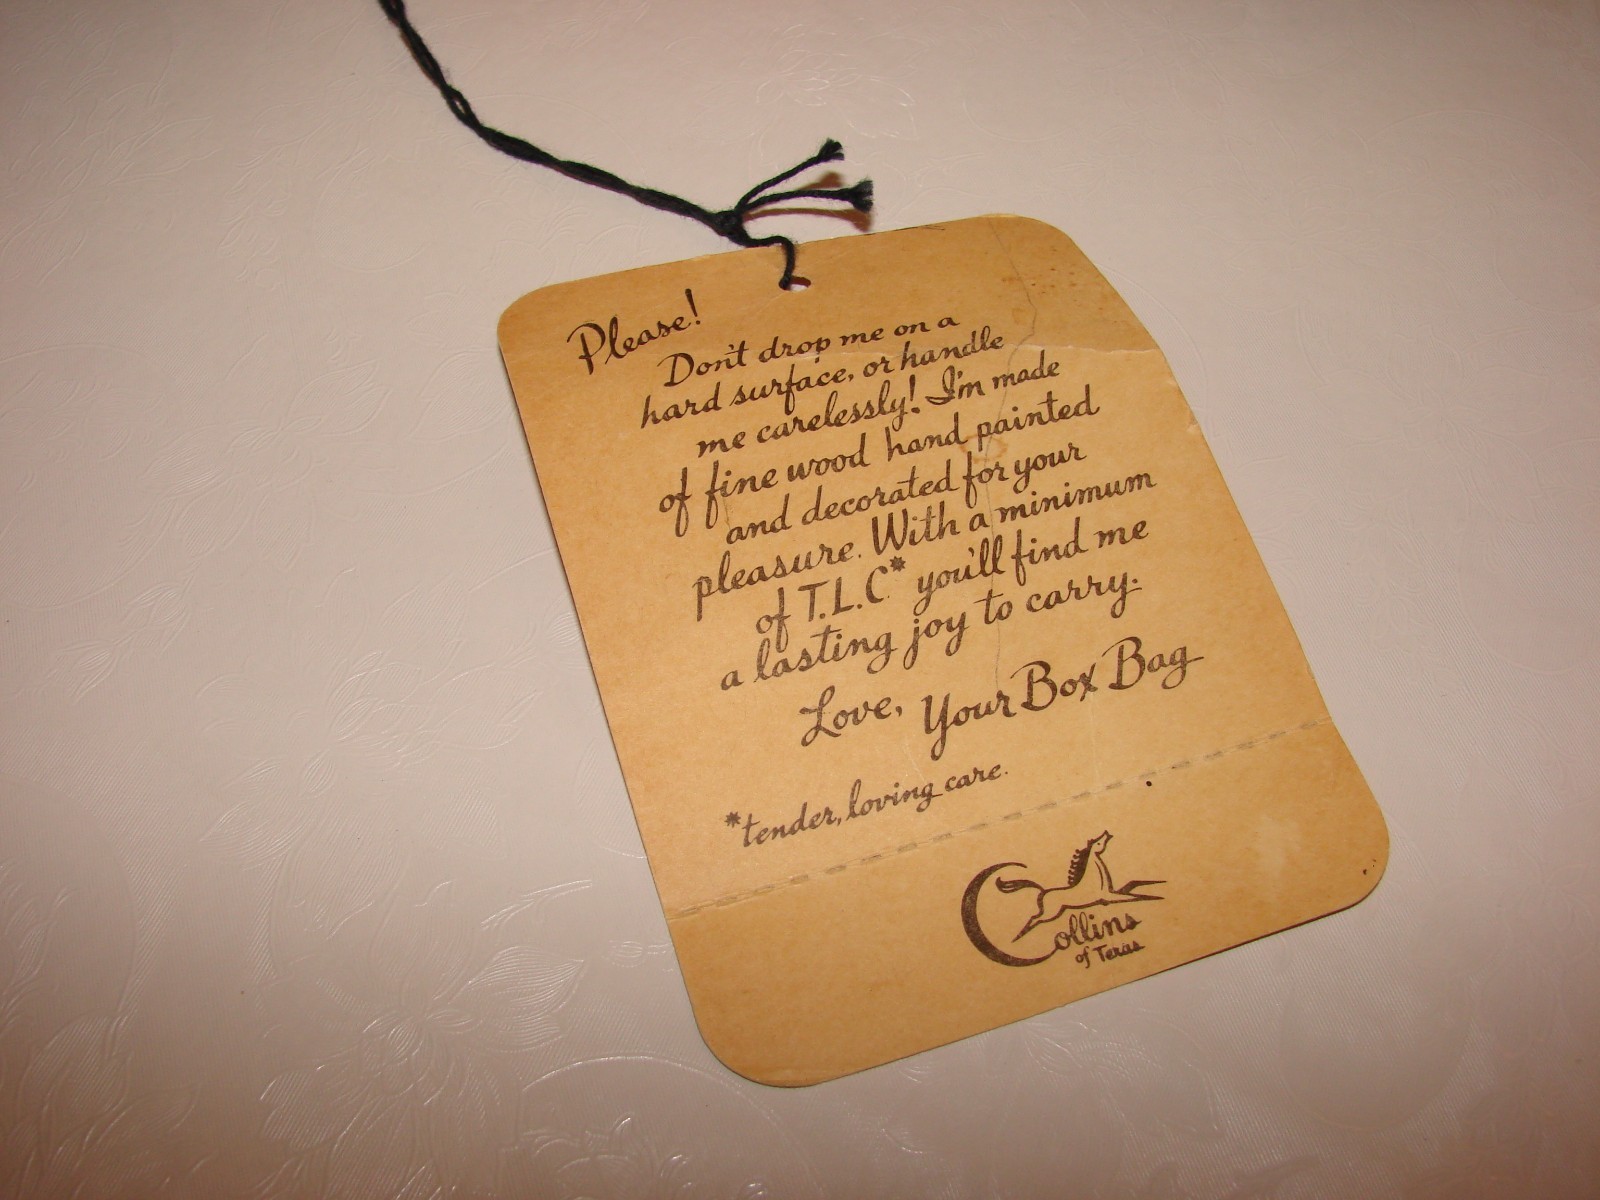 Please!
Don't drop me on a
hard surface, or handle
me carelessly! I'm made
of fine wood hand painted
and decorated for your
pleasure. With a minimum
of T.L.C* you'll find me
a lasting joy to carry.
Love, Your Box Bag
*tender, loving care.
Collins
of Texas